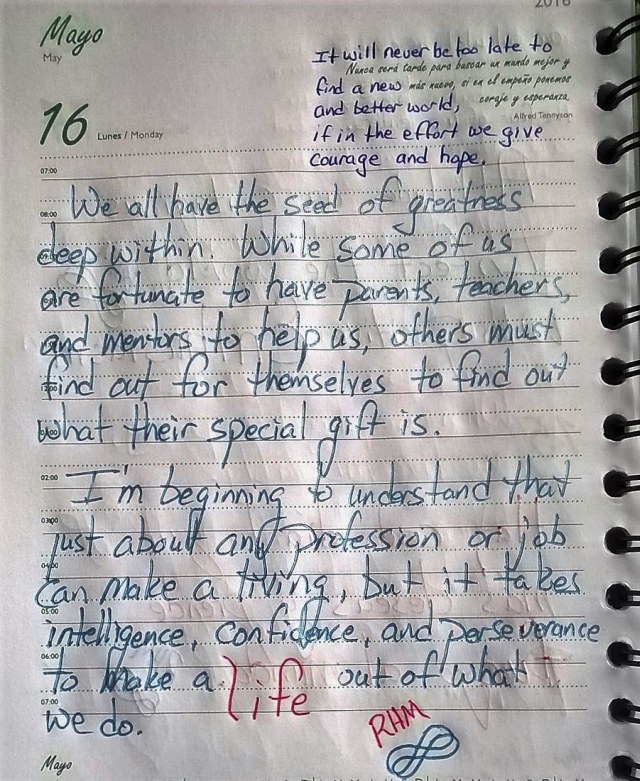 2016
Mayo
May
16 Lunes / Monday
It will never be too late to
Nunca será tarde para buscar un mundo mejor y
find a new
más nuevo, si en el empeño ponemos
and better world,
coraje y esperanza.
Alfred Tennyson
if in the effort we give
courage and hope.
07:00
We all have the seed of greatness
08:00
deep within. While some of us
are fortunate to have parents, teachers,
and mentors to help us, others must
find out for themselves to find out
what their special gift is.
02:00
I'm beginning to understand that
03:00
just about any profession or job
04:00
can make a living, but it takes
05:00
intelligence, confidence, and perseverance
06:00
to make a life out of what
07:00
we do.
RHM
Mayo